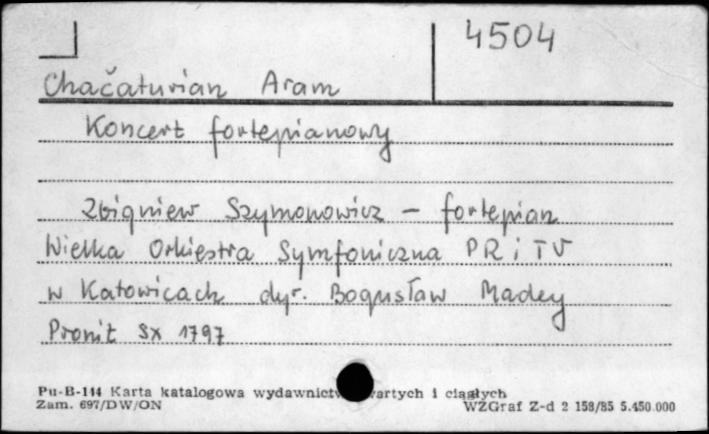 4504
Chačaturian Aram
Koncert fortepianowy
Zbigniew Szymonowicz - fortepian
Wielka Orkiestra Symfoniczna PR i TV
w Katowicach dyr. Bogusław Madey
Pronit SX 1797
Pu-B-114 Karta katalogowa wydawnictw zwartych i ciągłych
Zam. 697/DW/ON WZGraf Z-d 2 158/85 5.450.000